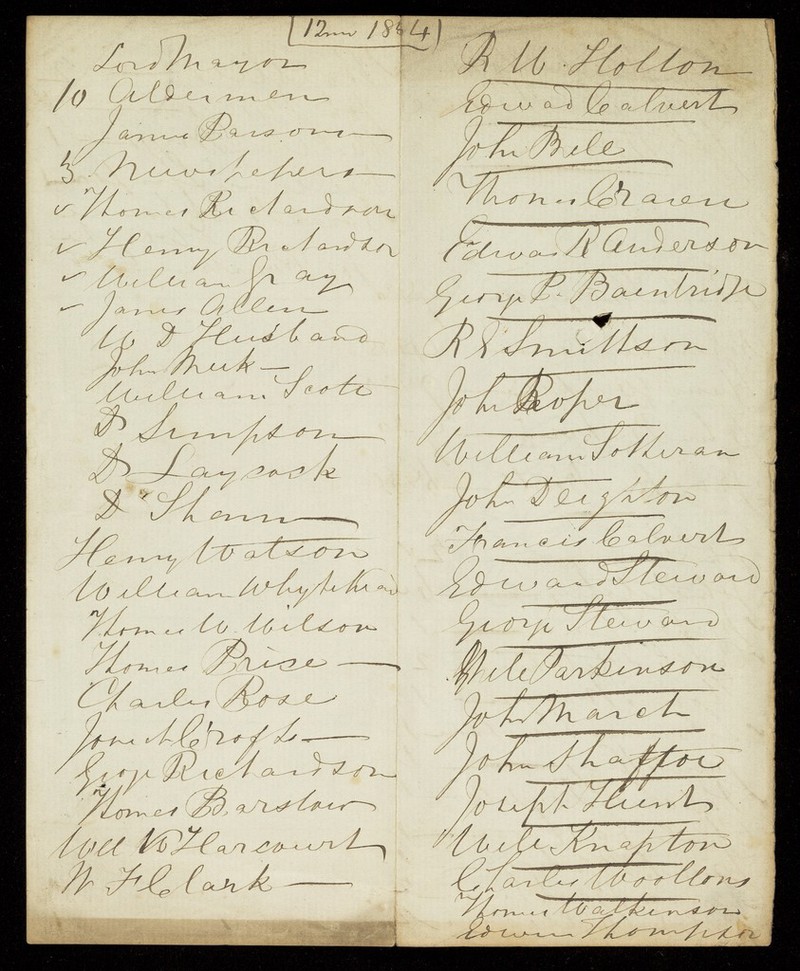 12mo 1864
Lord Mayor
10 Aldermen
James Parsons
3 Newspapers
Thomas Richardson
Henry Richardson
William Gray
James Allen
W D Husband
John Meek
William Scott
Dr Simpson
Dr Laycock
Dr Shann
Henry Watson
William Whytehead
Thomas W Wilson
Thomas Price
Charles Rose
Joseph Crofts
George Richardson
Thomas Barstow
Harcourt
W F Clark
R W Hollon
Edward Calvert
John Bell
Thomas Craven
Edward R Anderson
George P. Bainbridge
R E Smithson
John Roper
William Sotheran
John Deighton
Francis Calvert
Edward Steward
George Steward
Will Parkinson
John March
John Shaftoe
Joseph Hunt
Will Knapton
Charles Woollons
Thomas Watkinson
Edwin Thompson